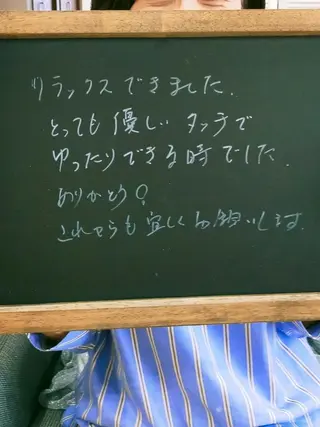 リラックスできました.
とっても優しいタッチで
ゆったりできる時でした.
ありがとう!
これからも宜しくお願いします.